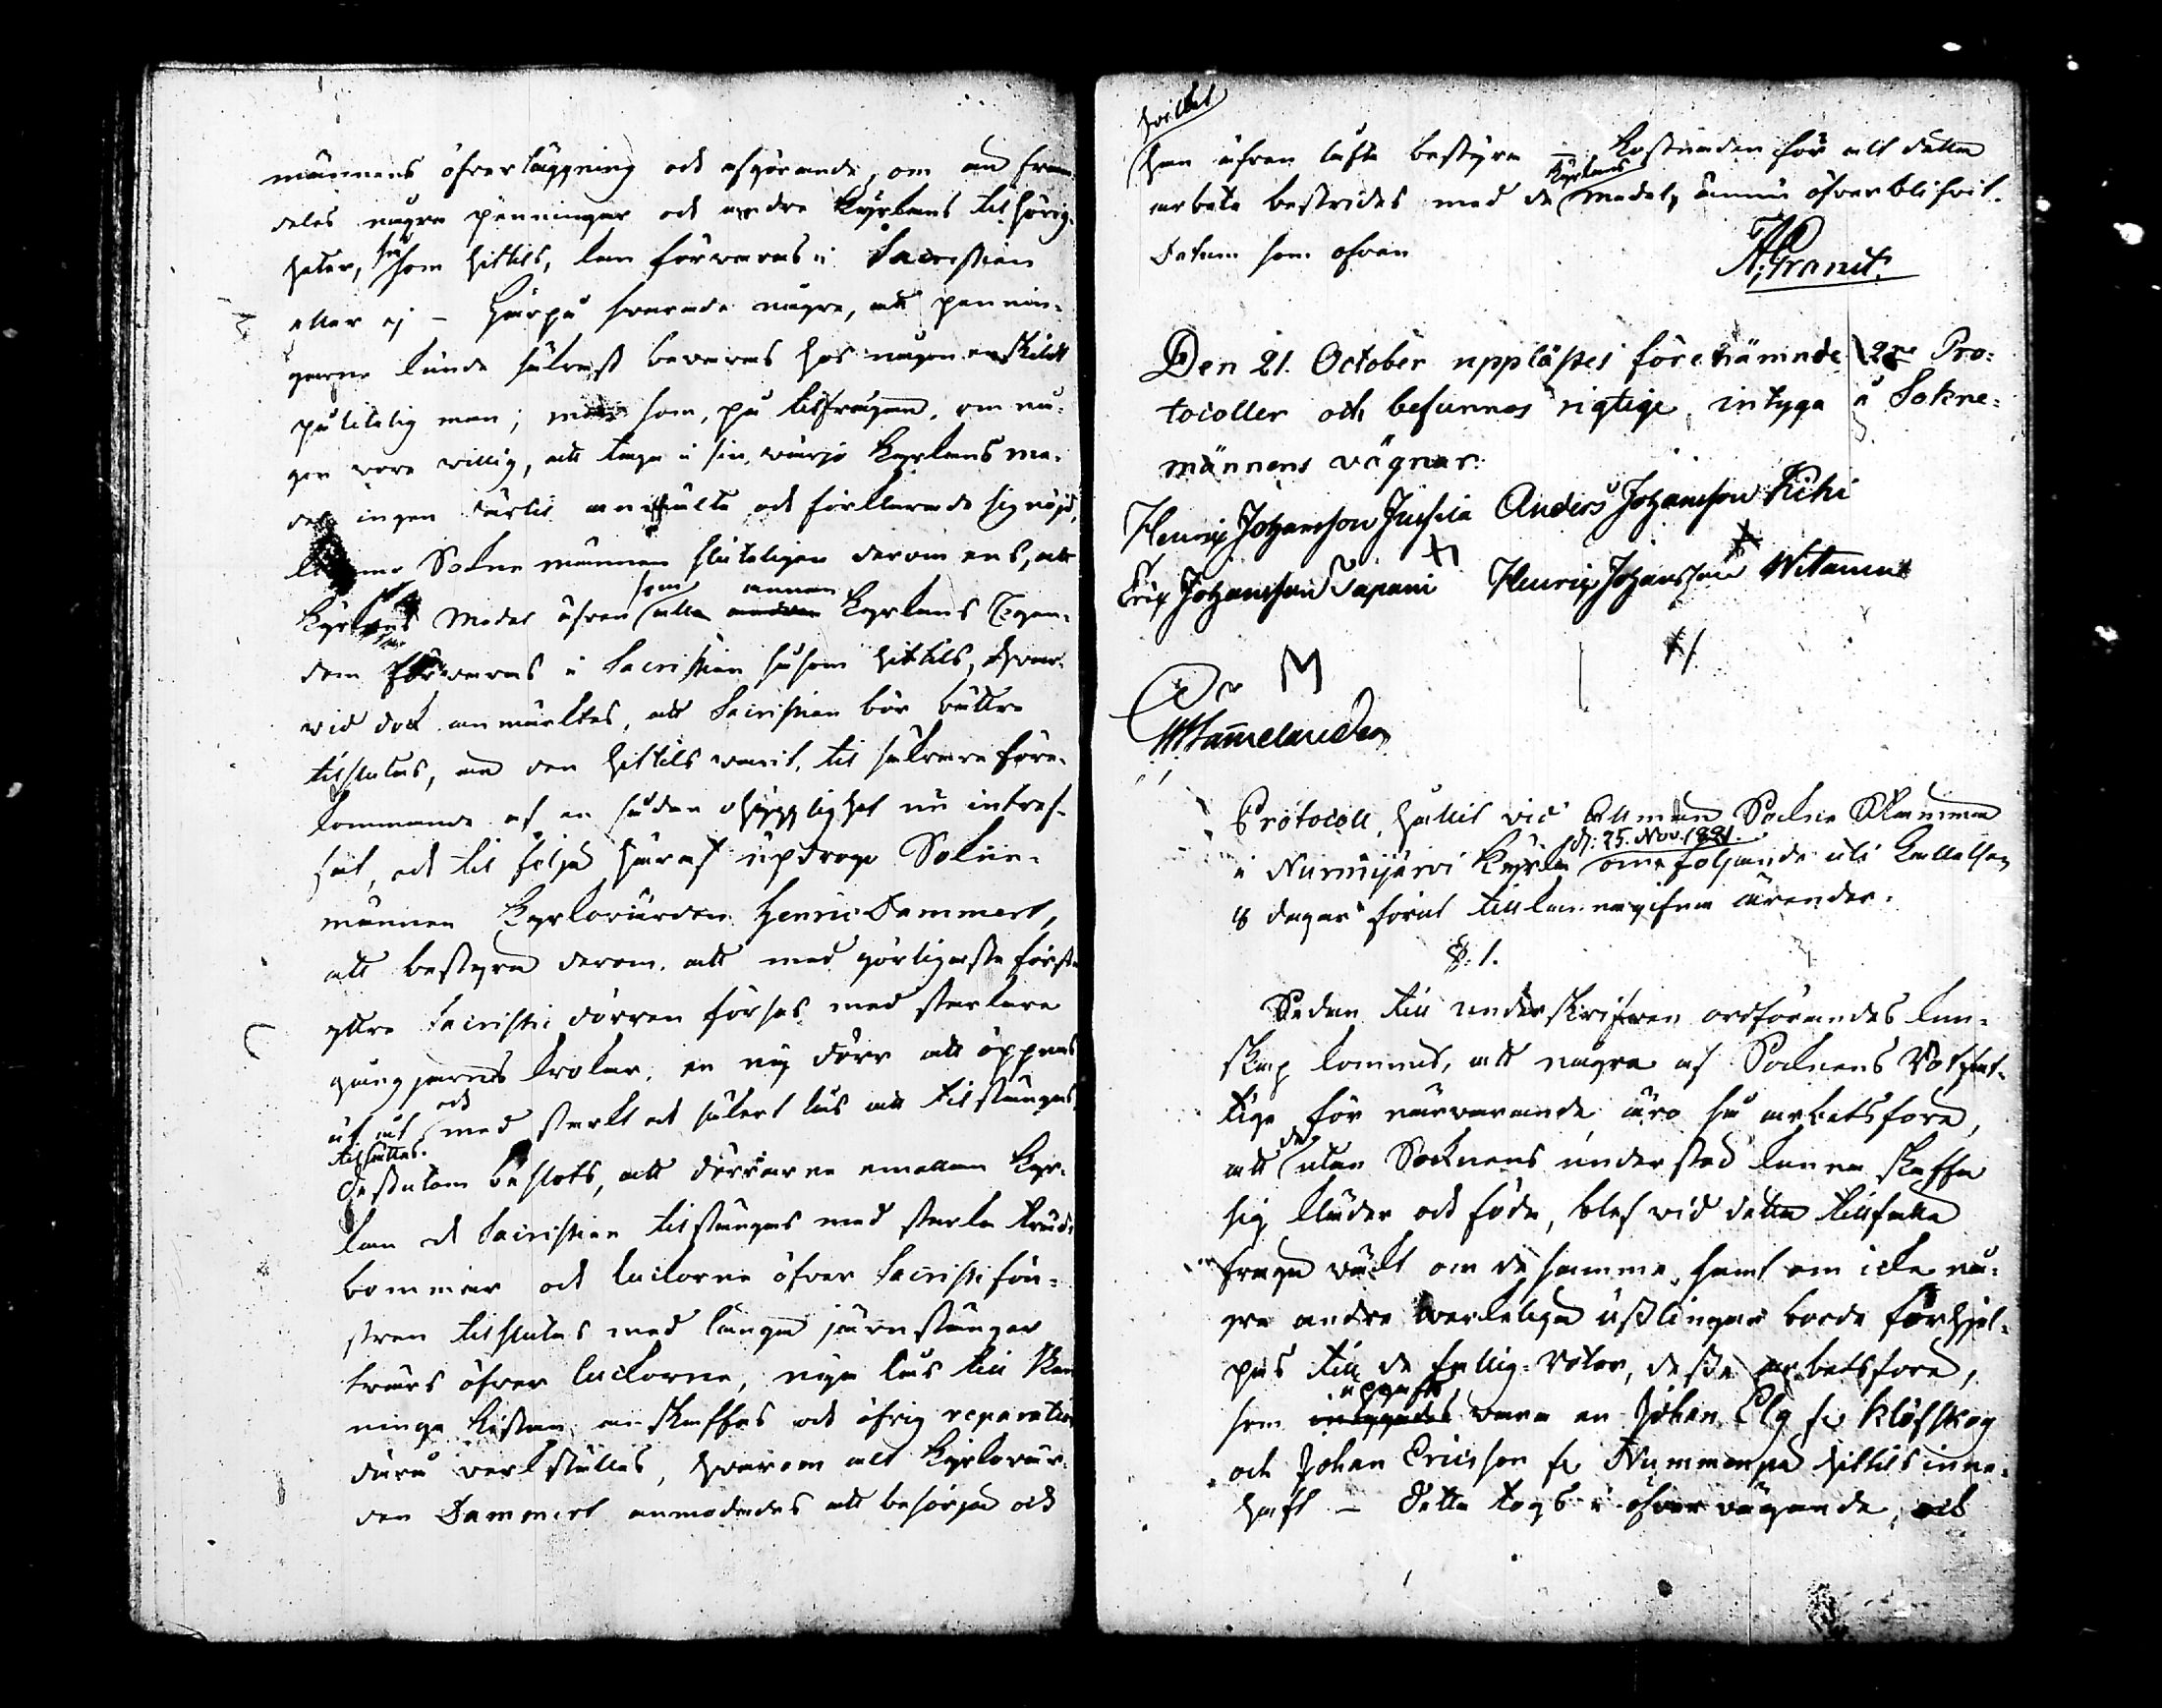 männens öfverläggning och afgörande, om an fram-
deles några penningar och andra Kyrkans tilhörig-
heter, så som hittils, kan förvaras i Sacristian
eller ej – Härpå svarade några, att pennin-
garne kunde säkrast bevaras hos någon enskildt
pålitelig man; men som, på tilfrågan, om nå-
gon vore willig, att taga i sin värjo Kyrkans me-
del ingen dertil anmälte och förklarade sig nöjd,
Sokne männen sluteligen derom ens, att
Kyrkans Medel äfven som alla annan Kyrkans Egen-
dom förvaras i Sacristian såsom hittils, hvar-
vid dock anmärktes, att Sacristian bör bättre
tilslutas, än den hittils varit, til säkrare före-
kommande af en sådan ohygglighet nu intref-
fat, och til följd häraf updrogo Sokne-
männen Kyrkovärden Henric Dammert,
att bestyra derom, att med görligaste första
yttre Sacristie dörren förses med starkare
gångjerns krokar, en ny dörr att öppnas
ut åt och med starkt och säkert lås att tilstängas
tilsättas.
Dessutom beslöts, att dörrarne emellan Kyr-
kan och Sacristian tilstänges med starka träd-
bommar och luckorne öfver Sacristi fön-
stren tilslutas med långa järnstänger
tvärs öfver luckorne, nya lås till Pen
ninge Kistan anskaffas och öfrig reparation
derå verkställes, hvarom allt Kyrkovär-
den Dammert anmodades att besörja och
hvilket
han äfven lofte bestyra – Kostnaden för allt detta
arbete bestrides med de Kyrkans medel, ännu öfverblifvit.
Datum som ofvan
A. Granit.
Den 21. October uppläßtes förenämnde 2ne Pro-
tocoller och befunnos rigtige, intyga å Sokne-
männens vägnar:
Henrix Johansson Jussila Anders Johansson Kihi
Erix Johansson Tapani Henrix Johansson Witamä
M
Protocoll, hållit vid Allmän Sockne Stämma
i Nurmijärvi Kyrka d. 25. Nov. 1821. om följande uti Kallelsen
8 dagar förut tillkännagifna ärender.
§. 1.
Sedan till underskrifven ordförandes kun-
skap kommit, att några af Socknens Rotfat-
tige för närvarande äro så arbetsföra,
att de utan Socknens understöd kunna skaffa
sig kläder och föda, blef vid detta tillfälle
fråga väckt om de samma, samt om icke nå-
gra andra verkeliga usslingar borde förhjel-
pas till de fattig-Rotor, dessa arbetsföra,
som uppgåfvos vara en Johan Elg fr. Klöfskog
och Johan Ericsson fr Nummenpä hittils inne-
haft – Detta togs i öfvervägande, och